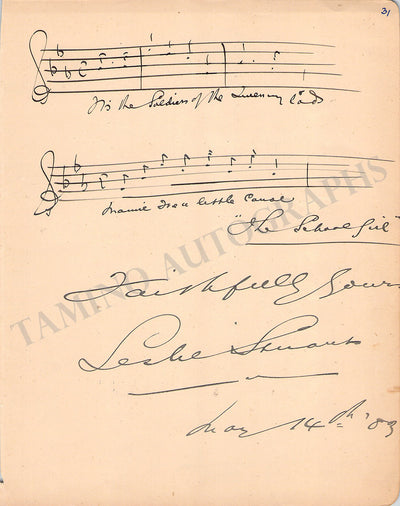 31
It's the Soldiers of the Queen my lads
Mamie I've a little canoe
"The School Girl"
TAMINO AUTOGRAPHS
Faithfully Yours
Leslie Stuart
May 14th 03